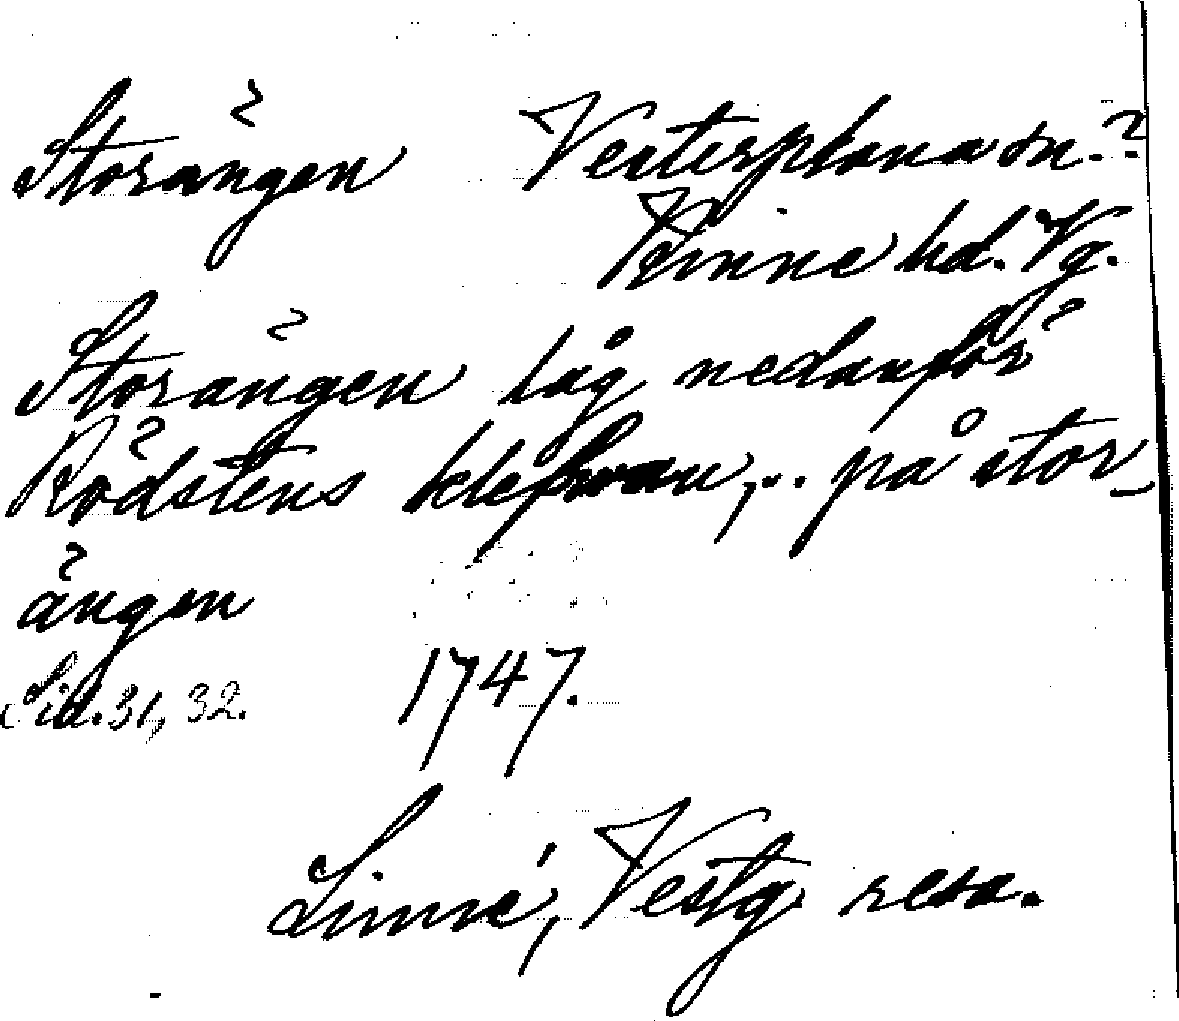 Storängen Vesterplana sn.?
Kinne hd. Vg.
Storängen låg nedanför
Rödstens klefwan,... på stor-
ängen
Sid. 31, 32. 1747.
Linné, Vestg. resa.